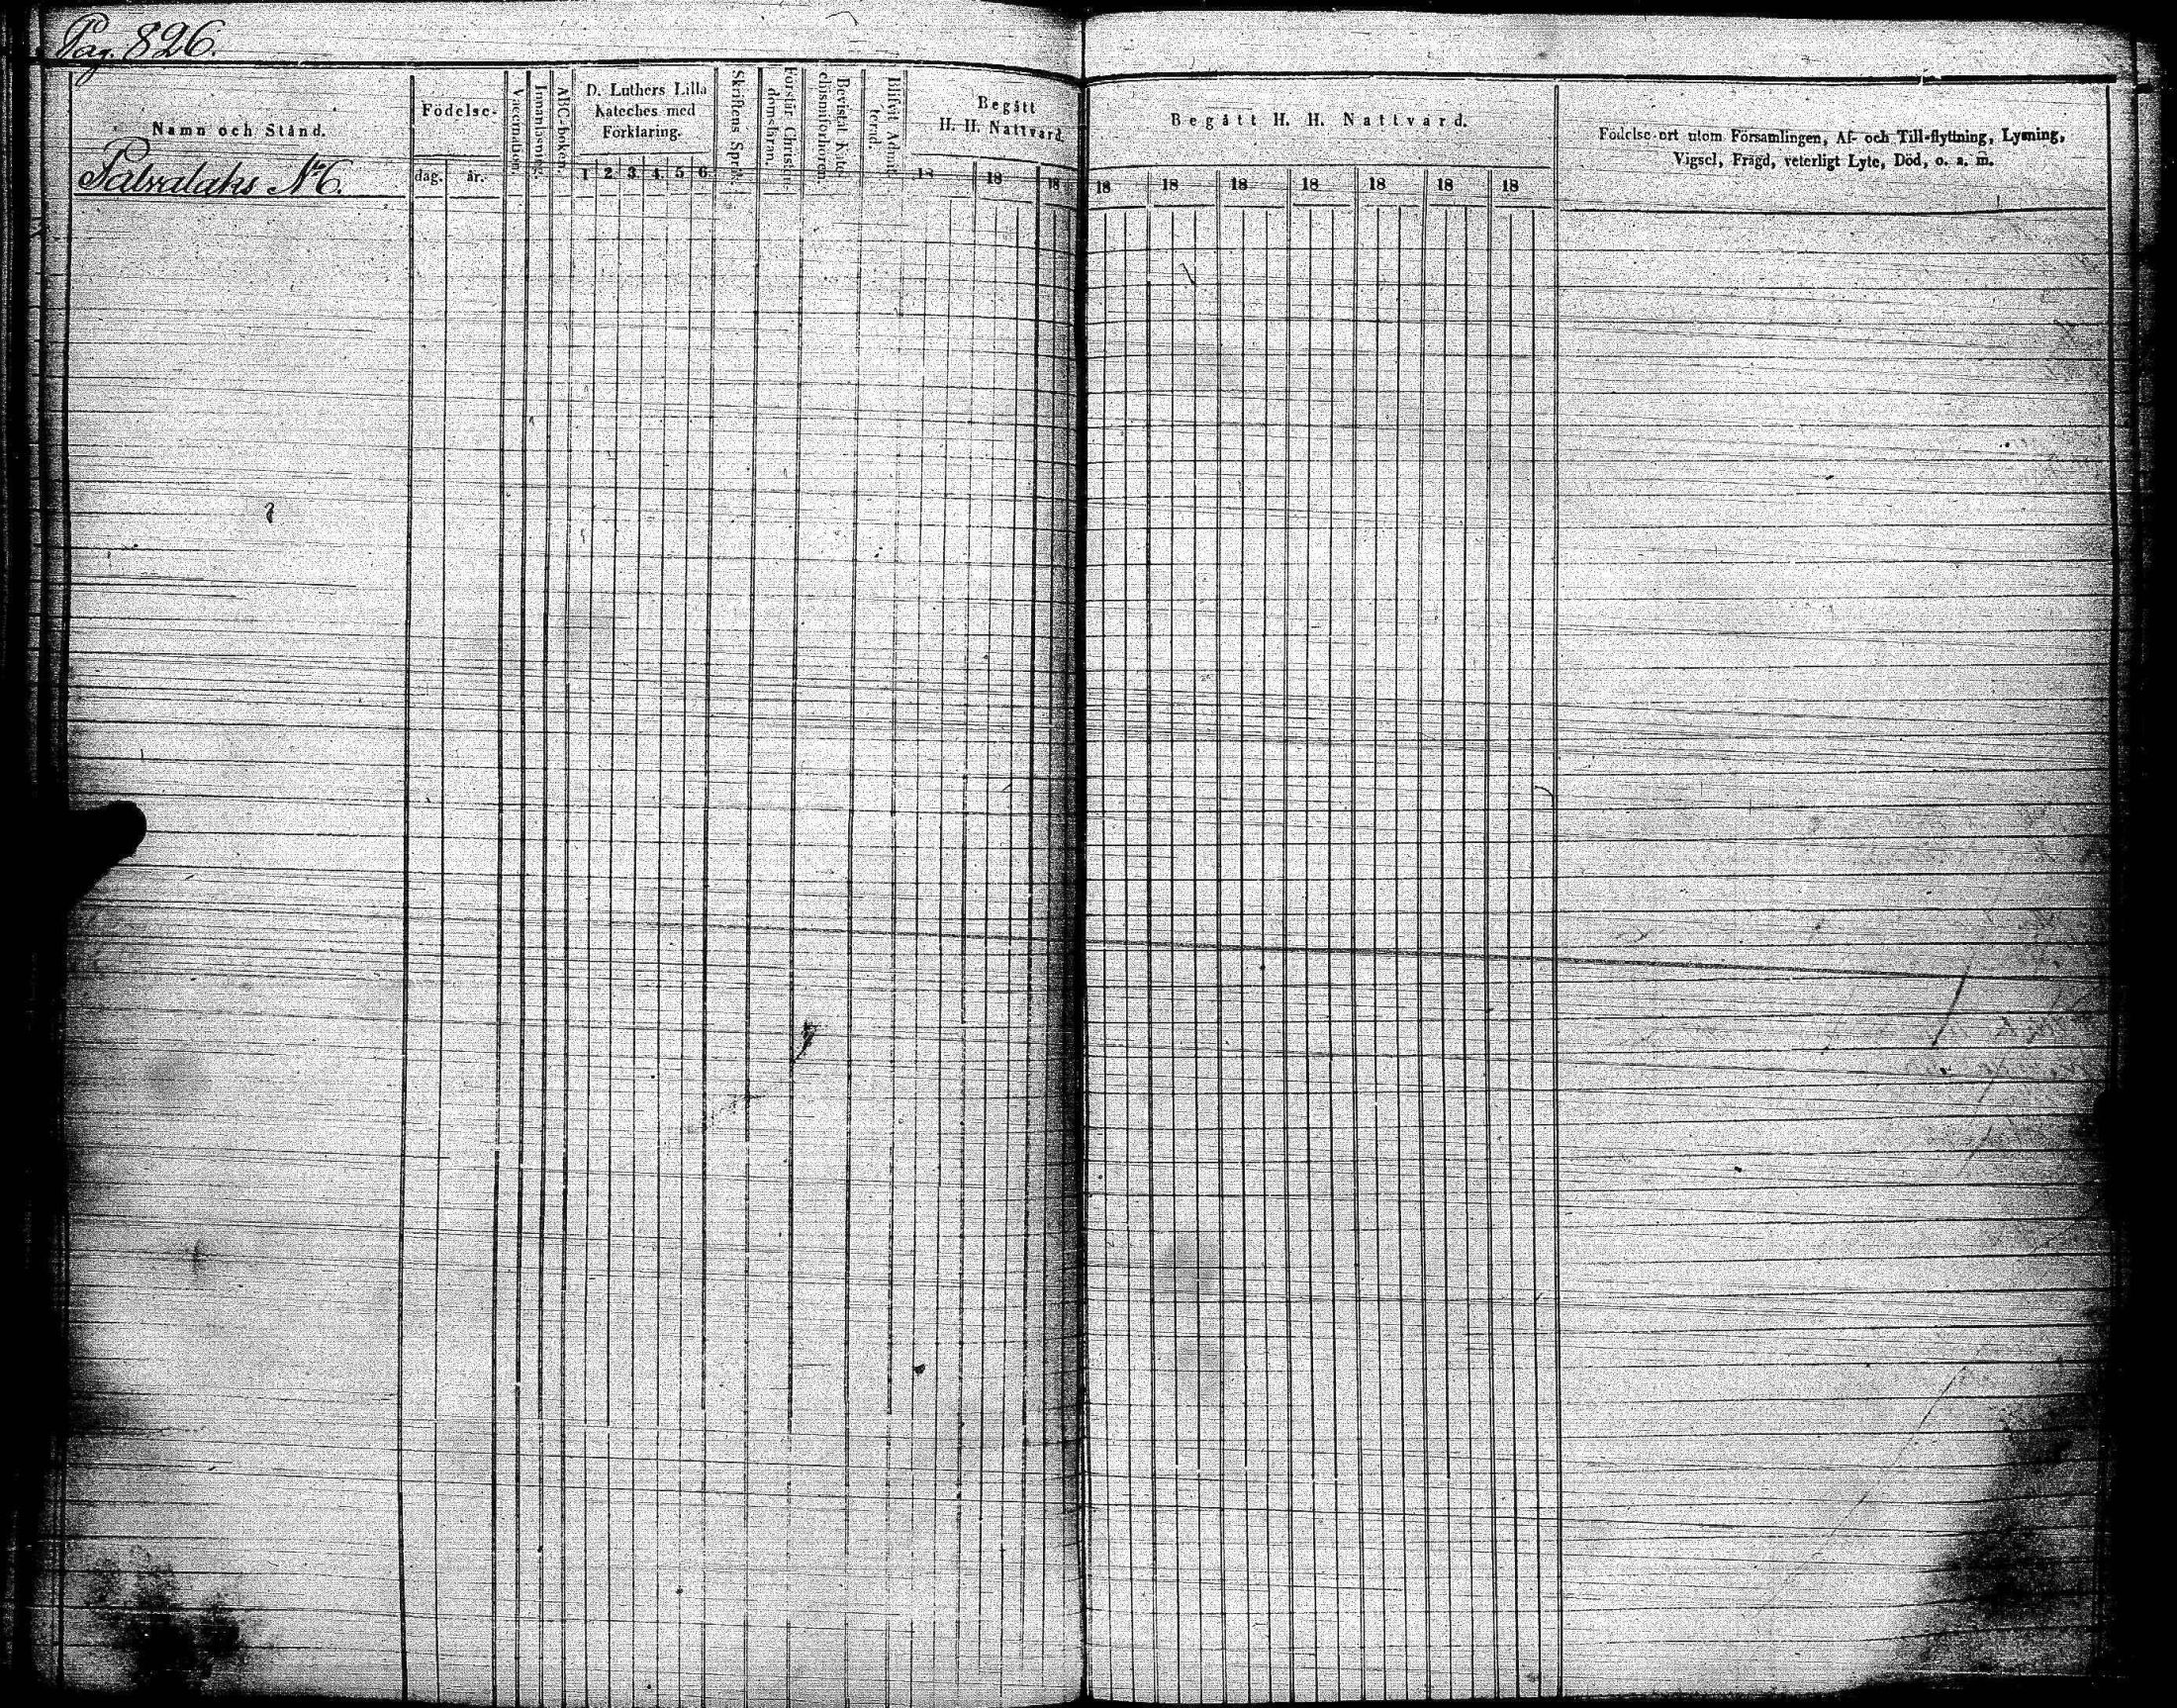 Pag. 826.
Namn och Stånd.
Palvalaks No 6.
Födelse-
dag.
år.
Vaccination.
Innanläsning.
ABC-boken.
D. Luthers Lilla
Kateches med
Förklaring.
1 2 3 4 5 6
Skriftens Språk.
Förstår Christen-
domsläran.
Bevistat Kate-
chismiförhören.
Blifvit Admit-
terad.
Begått
H. H. Nattvard.
18 18 18
Begått H. H. Nattvard.
18 18 18 18 18 18 18
Födelse-ort utom Församlingen, Af- och Till-flyttning, Lysning,
Vigsel, Frägd, veterligt Lyte, Död, o. a. m.